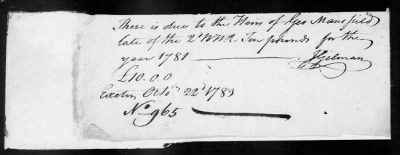 There is due to the Heirs of Geo Mansfield
late of the 2d NHR Ten pounds for the
year 1781
JGilman
£10.0.0
Exeter Octo. 22d 1783
No 965